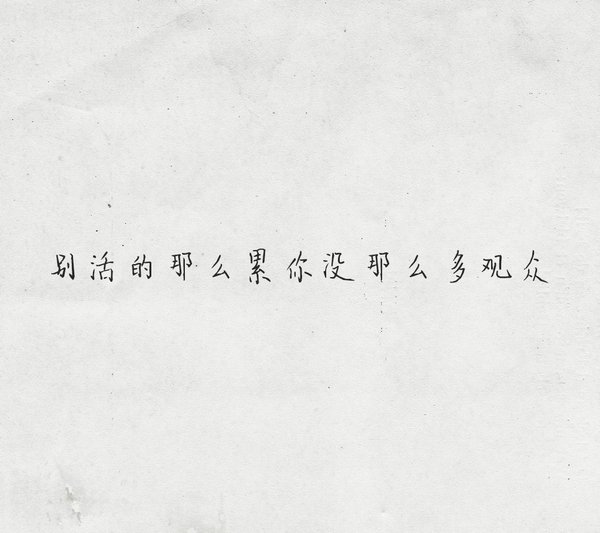 别活的那么累你没那么多观众